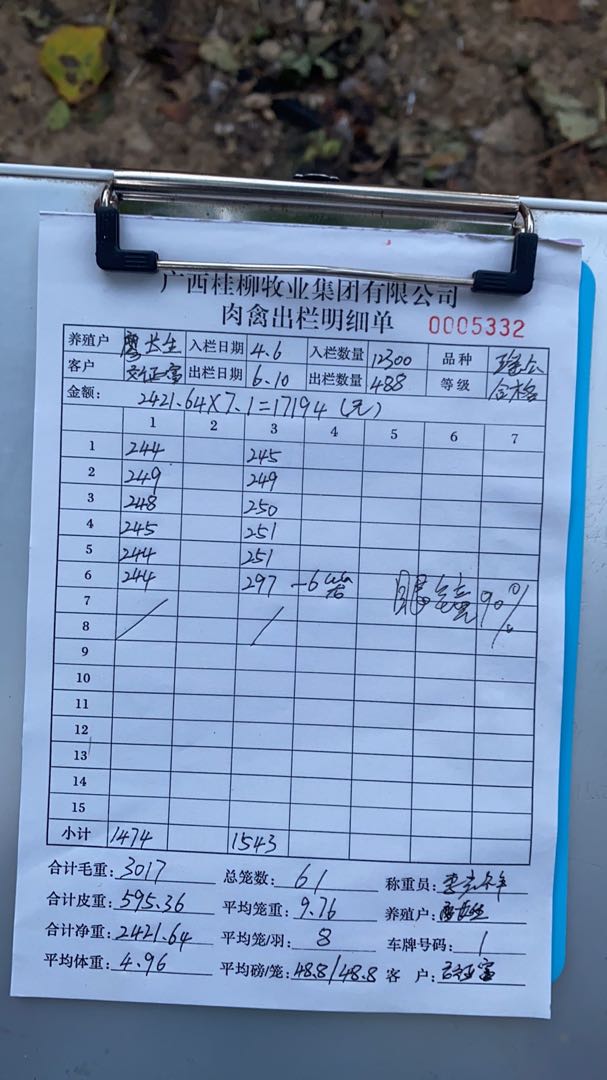 广西桂柳牧业集团有限公司
肉禽出栏明细单 0005332
养殖户 廖长生 入栏日期 4.6 入栏数量 12300 品种
客户 出栏日期 6.10 出栏数量 488 等级 合格
金额: 2421.64×7.1=17194(元)
1 2 3 4 5 6 7
1 244 245
2 249 249
3 248 250
4 245 251
5 244 251
6 244 297 -6 90%
7
8
9
10
11
12
13
14
15
小计 1474 1543
合计毛重: 3017 总笼数: 61 称重员:
合计皮重: 595.36 平均笼重: 9.76 养殖户:
合计净重: 2421.64 平均笼/羽: 8 车牌号码: 1
平均体重: 4.96 平均磅/笼: 48.8/48.8 客 户: